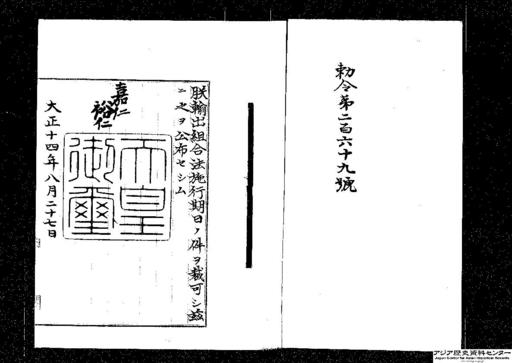 勅令第二百六十九號
朕輸出組合法施行期日ノ件ヲ裁可シ茲
ニ之ヲ公布セシム
嘉仁
裕仁
天皇
御璽
大正十四年八月二十七日
アジア歴史資料センター
Japan Center for Asian Historical Records